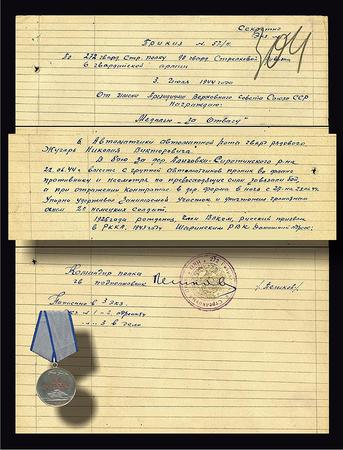 Секретно
Экз. №
504
Приказ № 57/н
По 272 гвард. Стр. полку 90 гвард Стрелковой
6 гвардейской армии
3 Июля 1944 года
От имени Президиума Верховного Совета Союза ССР
Награждаю:
Медалью "За Отвагу"
6. Автоматчика автоматной роты гвард рядового
Жугарь Николая Викторовича.
В бою за дер Сиротинского р-на
22.06.44г вместе с группой автоматчиков проник во фланг
противнику и несмотря на превосходящие силы завязали бой,
а при отражении контратак в дер в ночь с
Упорно удерживал Занимаемый Участок и уничтожил гранатами
2х немецких солдат.
1926 года рождения, Член ВЛКСМ, русский призван
в РККА 1943 году Шаринским РВК
Командир полка
гв подполковник
/Пешков/
в 3 экз.
в дело